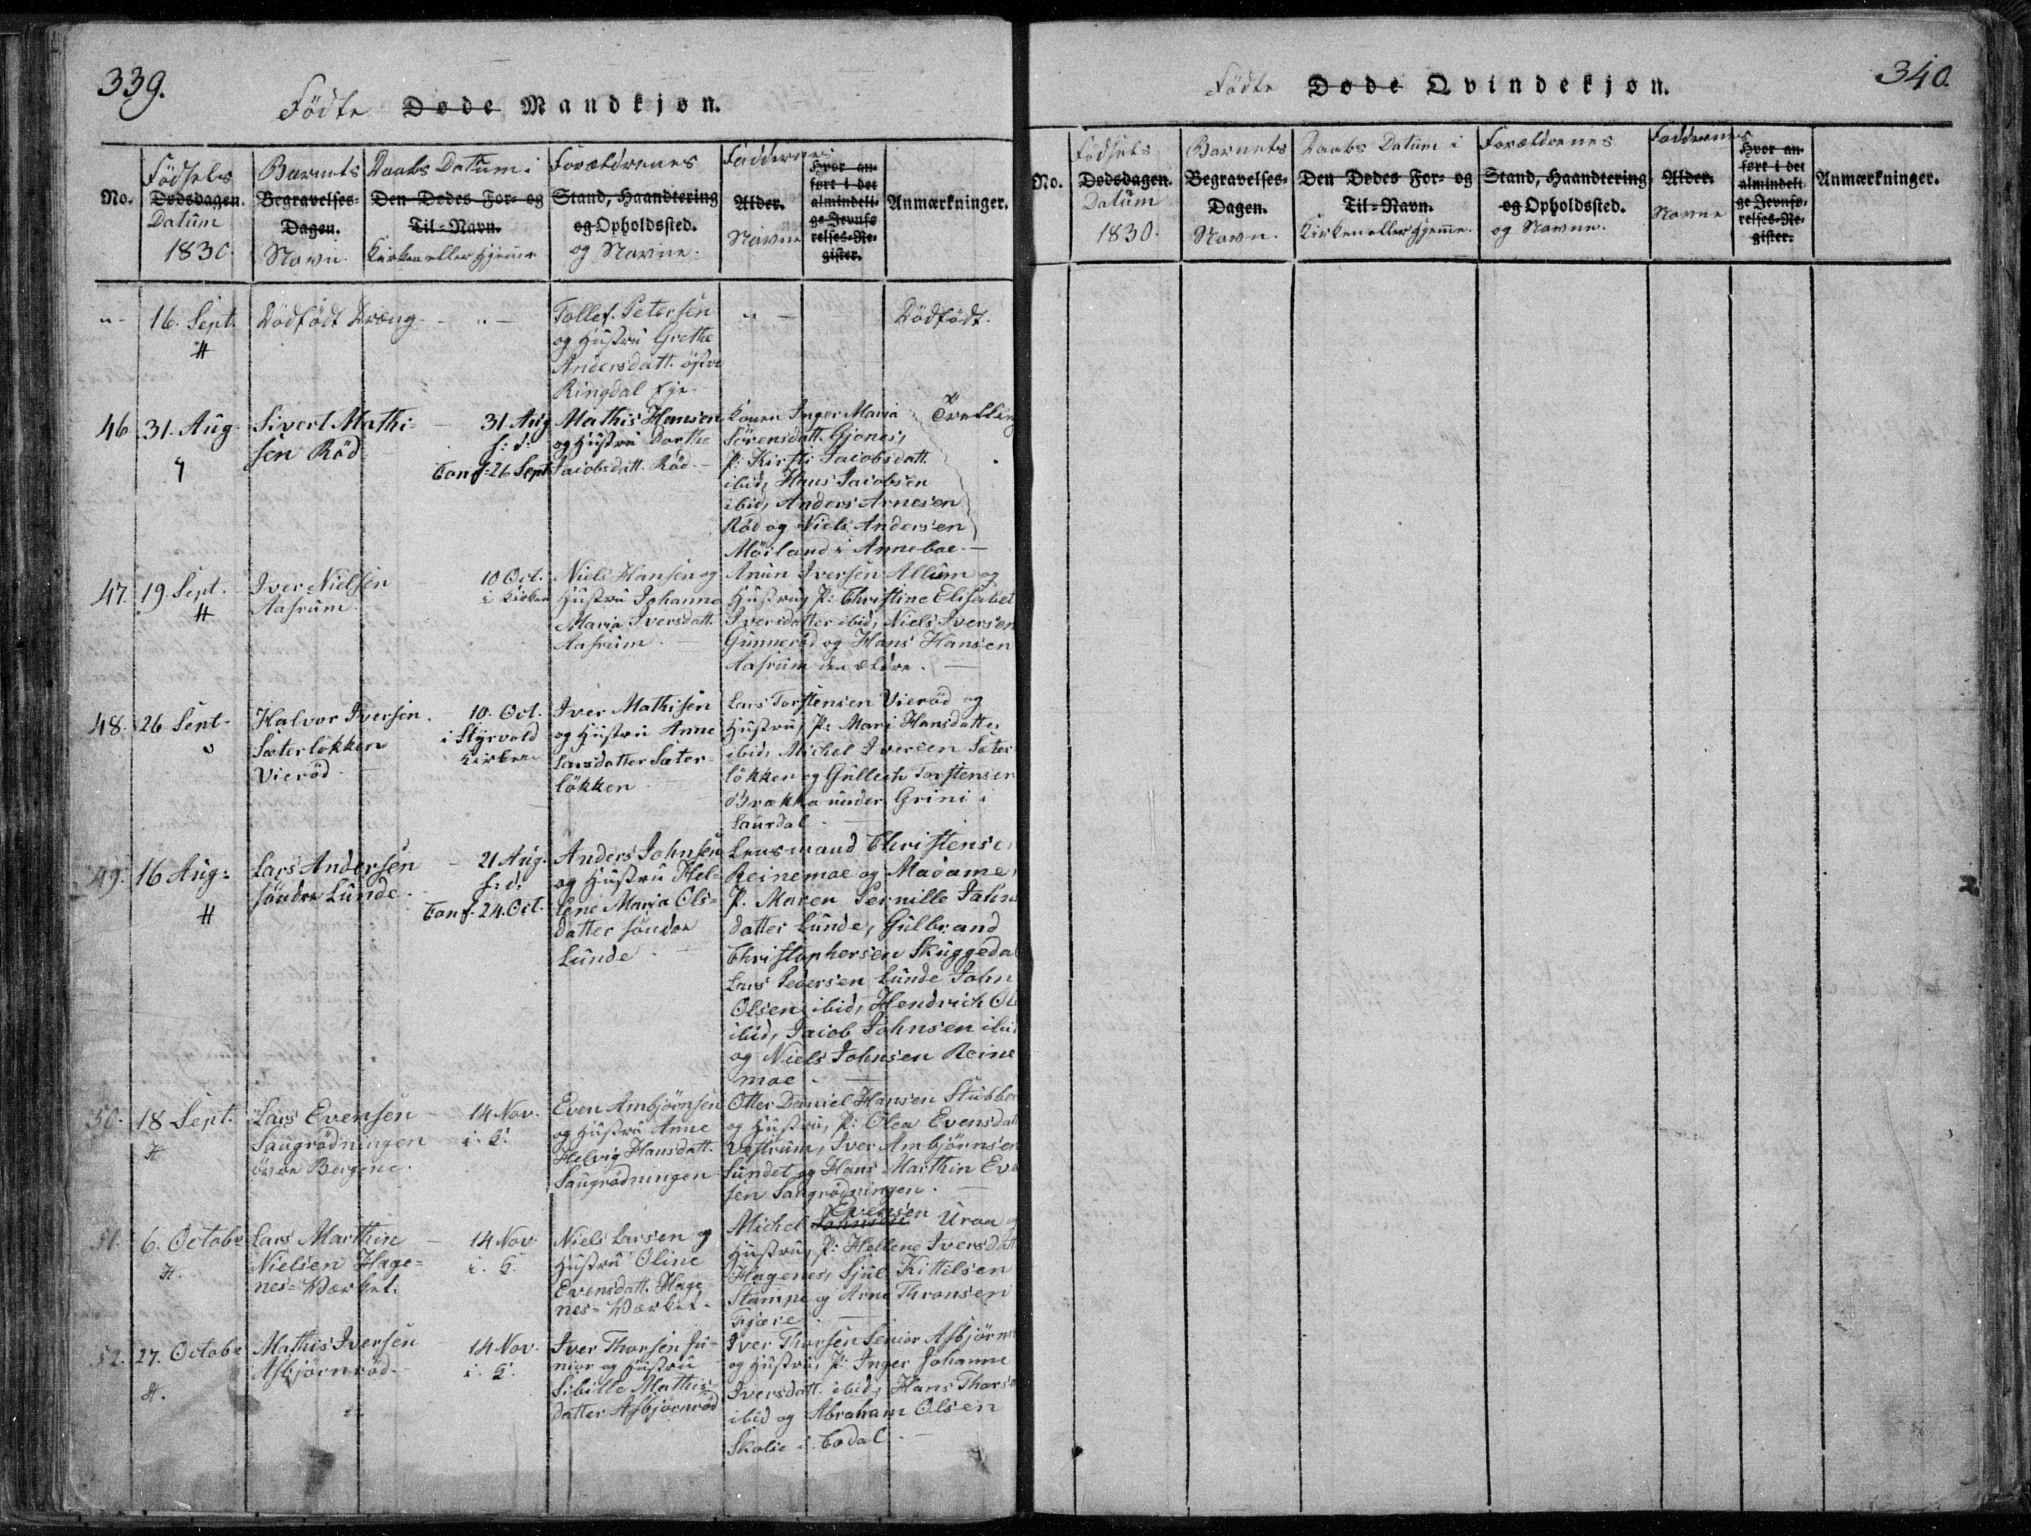 339.
Födte Døde Mandkjøn.
No.
Födsels
Dødsdagen.
Datum
1830.
Barnets
Begravelses-
Dagen.
Navn
Daabs Datum i
Den Dødes For- og
Til-Navn.
Kirken eller Hjemme
Forældrenes
Stand, Haandtering
og Opholdssted.
og Navne.
Faddernes
Alder.
Navne
Hvor an-
ført i det
almindeli-
ge Jevnfø-
relses-Re-
gister.
Anmærkninger.
"- 16. Sept. Dödfödt Dreng - " -
Tollef Petersen
og Hustru Grethe
Andersdatt. östre
Ringdal Eje.
" -
Dödfödt.
46 31. Aug.
Sivert Mathi-
sen Röd
31 Aug
h: d:
Conf: 26 Sept
Mathis Hansen
og Hustru Dorthe
Jacobsdatt. Röd. -
Konen Inger Maria
Sörensdatt. Gjones,
P: Kirsti Jacobsdatt.
ibid, Hans Jacobsen
ibid, Anders Arnesen
Röd og Niels Andersen
Möiland i Anneboe. -
Trelling
47. 19. Sept.
Iver Nielsen
Aasrum.
10 Oct.
i Kirken
Niels Hansen og
Hustru Johanne
Maria Iversdatt.
Aasrum. -
Anun Iversen Allum og
Hustru, P: Christine Elisabet
Iversdatter ibid, Niels Iversen
Gunneröd og Hans Hansen
Aasrum den ældre. -
48. 26 Sept.
Halvor Iversen
Sæterlökken
Vieröd. -
10. Oct.
i Styrvold
Kirken
Iver Mathisen
og Hustru Anne
Larsdatter Sæter-
lökken -
Lars Torstensen Vieröd og
Hustru, P: Mari Hansdatter
ibid, Michel Iversen Sæter
lökken og Gullich Torstensen
Brække under Grini i
Laurdal. -
49. 16 Aug:
Lars Andersen
söndre Lunde. -
21 Aug.
h: d:
Conf. 24. Oct.
Anders Johnsen
og Hustru Hel-
lene Maria Ols-
datter söndre
Lunde. -
Lensmand Christensen
Reinemoe og Madame,
P. Maren Pernille John
datter Lunde, Gulbrand
Christophersen Skuggedal
Lars Pedersen Lunde John
Olsen ibid, Hendrich Ol
ibid, Jacob Johnsen ibi
og Niels Johnsen Reine
moe. -
50. 18 Sept.
Lars Evensen
Saugrödningen
övre Bergene.
14 Nov.
i. K.
Even Ambjörnsen
og Hustru Anne
Helvig Hansdatt.
Saugrödningen
Otter Daniel Hansen Stubber
og Hustru, P: Olea Evensdatt
Vestrum, Iver Ambjörnsen
Sundet og Hans Marthin Eve
sen Saugrödningen. -
51. 6. October
Lars Marthin
Nielsen Hage-
nes-Værket.
14 Nov.
i. K.
Niels Larsen og
Hustru Oline
Evensdatt. Hage
nes-Værket. -
Evensen
Michel Johnsen Uraa og
Hustru, P: Hellene Iversdatt
Hagenes, Sjul Kittilsen
Stampe og Arne Thronsen
Fjære. -
52. 27. October
Mathis Iversen
Asbjörnröd. -
14 Nov.
i. K.
Iver Thorsen Ju-
nior og Hustru
Sibille Mathis-
datter Asbjörnröd
Iver Thorsen Senior Asbjörn
og Hustru, P: Inger Johanne
Iversdatt. ibid, Hans Thors
ibid og Abraham Olsen
Skolie i Codal. -
340.
Födte Døde Qvindekjøn.
No.
Födsels
Dødsdagen.
Datum
1830.
Barnets
Begravelses-
Dagen.
Navn.
Daabs Datum i
Den Dødes For- og
Til-Navn.
Kirken eller Hjemme.
Forældrenes
Stand, Haandtering
og Opholdssted.
og Navne.
Faddernes
Alder.
Navne
Hvor an-
ført i det
almindeli-
ge Jevnfø-
relses-Re-
gister.
Anmærkninger.